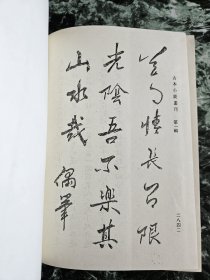 古本小說叢刊 第一輯
名句情長公限
光陰吾不樂其
山水哉
偶筆
二八四二